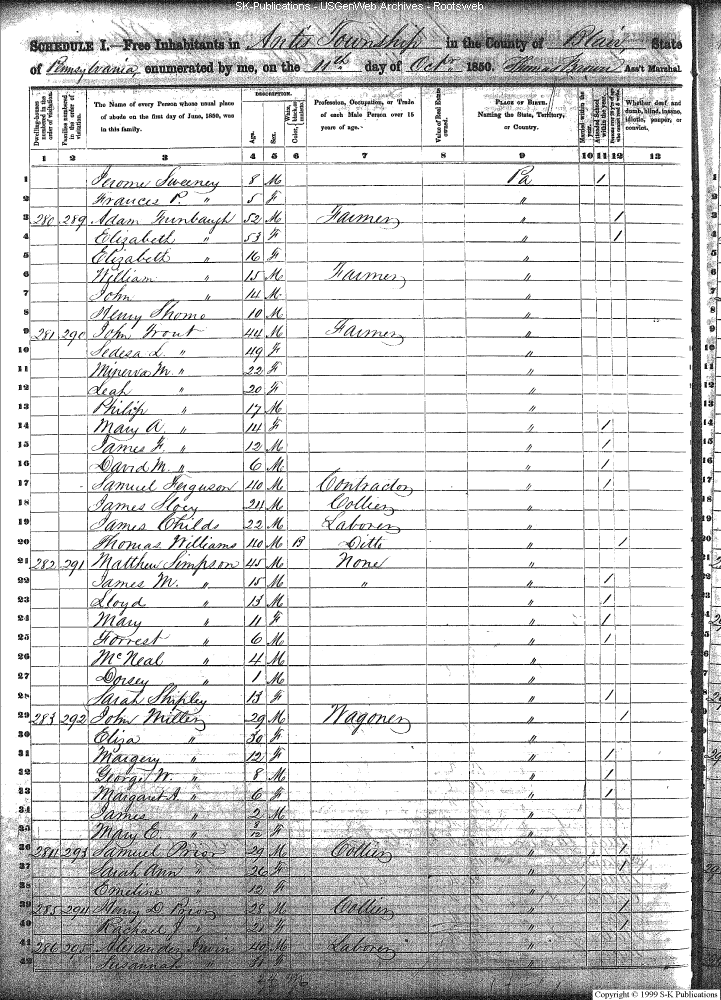 SK-Publications - USGenWeb Archives - Rootsweb
SCHEDULE I.—Free Inhabitants in Antis Township in the County of Blair, State
of Pennsylvania, enumerated by me, on the 11th day of Octr 1850. Thomas Ass't Marshal.
Dwelling-houses numbered in the order of visitation.
Families numbered in the order of visitation.
The Name of every Person whose usual place of abode on the first day of June, 1850, was in this family.
DESCRIPTION.
Age.
Sex.
White, black, or mulatto. Color,
Profession, Occupation, or Trade of each Male Person over 15 years of age.
Value of Real Estate owned.
PLACE OF BIRTH. Naming the State, Territory, or Country.
Married within the year.
Attended School within the year.
Whether deaf and dumb, blind, insane, idiotic, pauper, or convict.
1 2 3 4 5 6 7 8 9 10 11 12 13
1 Jerome Sweeney 8 M Pa /
2 Frances P. " 5 F "
3 280 289 Adam 52 M Farmer " /
4 Elizabeth " 53 F " /
5 Elizabeth " 16 F "
6 William " 15 M Farmer "
7 John " 14 M "
8 Henry Thomo 10 M "
9 281 290 John Trout 44 M Farmer "
10 L. " 49 F "
11 Minerva M. " 22 F "
12 Leah " 20 F "
13 Philip " 17 M "
14 Mary A. " 14 F " /
15 James F. " 12 M " /
16 David M. " 6 M " /
17 Samuel Ferguson 40 M Contractor " /
18 James 24 M Collier "
19 James Childs 22 M Laborer "
20 Thomas Williams 40 M B Ditto " /
21 282 291 Matthew Simpson 45 M None "
22 James M. " 15 M " " /
23 Lloyd " 13 M " /
24 Mary " 11 F " /
25 Forrest " 6 M " /
26 McNeal " 4 M "
27 Dorsey " 1 M "
28 Sarah Shipley 13 F " /
29 283 292 John Miller 29 M Wagoner " /
30 Eliza " 30 F "
31 Margery " 12 F " /
32 George W. " 8 M " /
33 Margaret A. " 6 F " /
34 James " 2 M "
35 Mary E. " F "
36 284 293 Samuel Prior 29 M Collier " /
37 Sarah Ann " 26 F " /
38 Emeline " 12 F "
39 285 294 Henry D. Prior 28 M Collier " /
40 Rachael " 21 F " /
41 286 295 Alexander Irwin 40 M Laborer "
42 Susannah " F "
Copyright © 1999 S-K Publications